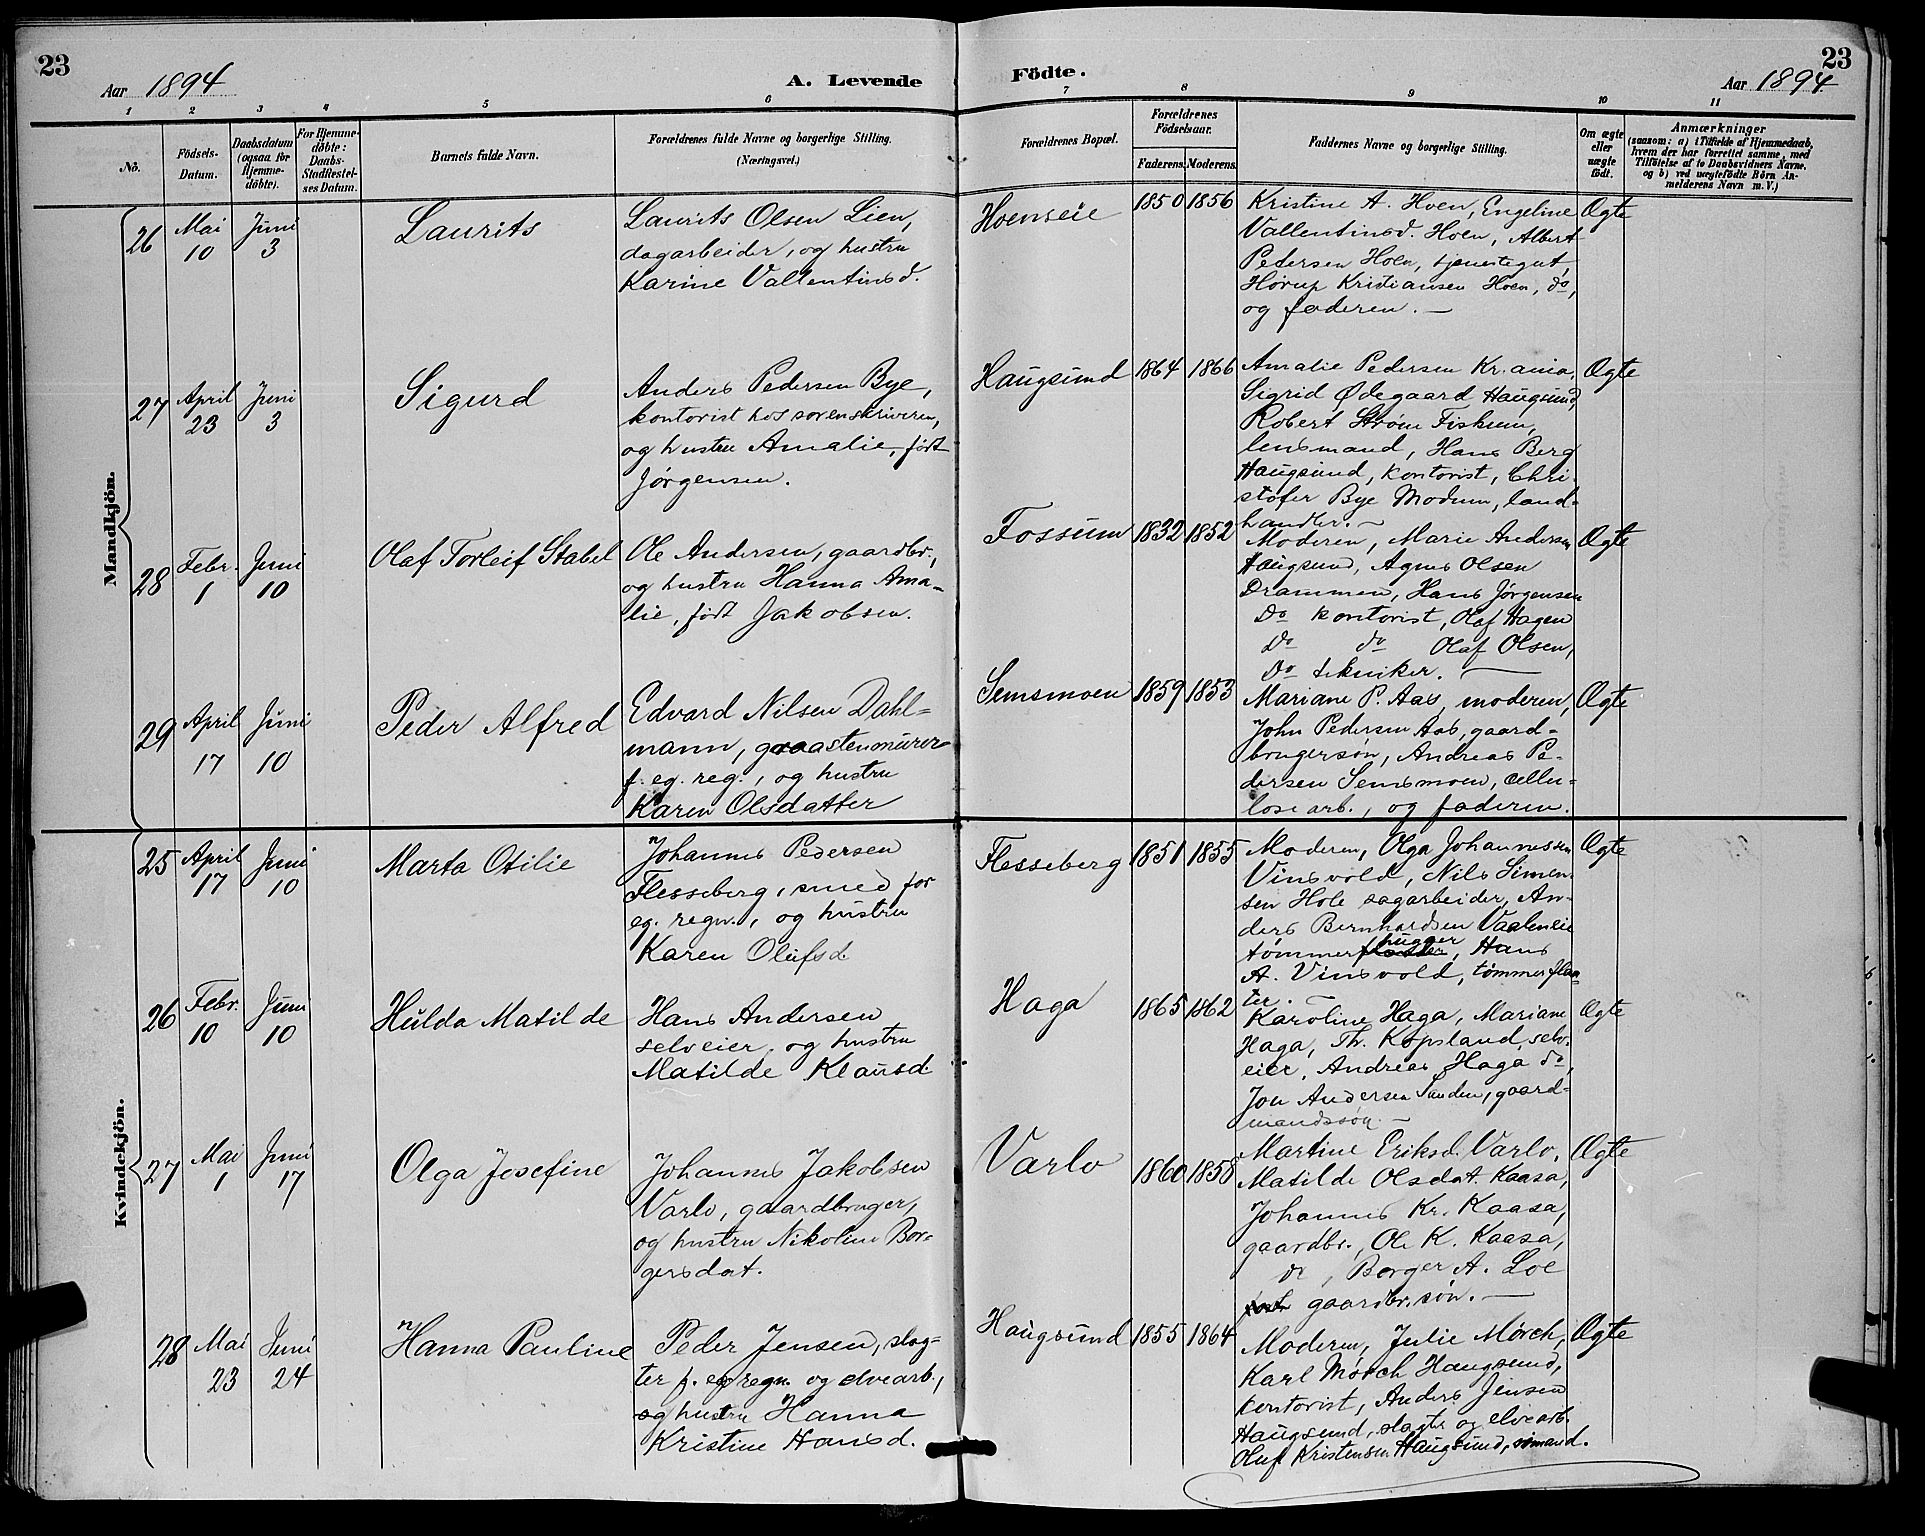 23
Aar 1894
A. Levende
Födte.
23
Aar 1894
1 2 3 4 5 6 7 8 9 10 11
No.
Födsels-
Datum.
Daabsdatum
(ogsaa för
Hjemme-
döbte).
For Hjemme-
döbte:
Daabs-
Stadfæstel-
ses Datum.
Barnets fulde Navn.
Forældrenes fulde Navne og borgerlige Stilling.
(Næringsvei.)
Forældrenes Bopæl.
Forældrenes
Födselsaar.
Faderens. Moderens.
Faddernes Navne og borgerlige Stilling.
Om ægte
eller
uægte
født.
Anmærkninger
(saasom: a) i Tilfælde af Hjemmedaab,
hvem der har forrettet samme, med
Tilføielse af to Daabsvidners Navne.
og b) ved uægtefødte Börn An-
melderens Navn m. V.)
Mandkjön.
26
Mai
10
Juni
3
Laurits
Laurits Olsen Lien,
dagarbeider, og hustru
Karine Vallentinsd.
Hoenseie
1850 1856
Kristine A. Hoen, Engeline
Vallentinsd. Hoen, Albert
Pedersen Hoen, tjenestegut,
Hørup Kristiansen Hoen, do,
og faderen. —
Ægte
27
April
23
Juni
3
Sigurd
Anders Pedersen Bye,
kontorist hos sorenskriveren,
og hustru Amalie, født
Jørgensen.
Haugsund
1864 1866
Amalie Pedersen Kr.ania,
Sigrid Ødegaard Haugsund,
Robert Strøm Fiskum,
lensmand, Hans Berg
Haugsund, kontorist, Chri-
stofer Bye Modum, land-
handler. —
Ægte
28
Febr.
1
Juni
10
Olaf Torleif Stabel
Ole Andersen, gaardbr.,
og hustru Hanna Ama-
lie, født Jakobsen.
Fossum
1832 1852
Moderen, Marie Andersen
Haugsund, Agnes Olsen
Drammen, Hans Jørgensen
do kontorist, Olaf Hagen
do do Olaf Olsen,
do tekniker. —
Ægte
29
April
17
Juni
10
Peder Alfred
Edvard Nilsen Dahl-
mann, graastensmurer
f. eg. reg., og hustru
Karen Olsdatter
Semsmoen
1859 1853
Mariane P. Aas, moderen,
John Pedersen Aas, gaard-
brugersøn, Andreas Pe-
dersen Semsmoen, cellu-
losearb., og faderen.
Ægte
Kvindekjön.
25
April
17
Juni
10
Marta Otilie
Johannes Pedersen
Flesseberg, smed for
eg. regn., og hustru
Karen Olufsd.
Flesseberg
1851 1855
Moderen, Olga Johannessen
Vinsvold, Nils Simen-
sen Hole sagarbeider, An-
ders Bernhardsen Vaaleneie
hugger
tømmerfløder, Hans
A. Vinsvold, tømmerflaa-
ter. —
Ægte
26
Febr.
10
Juni
10
Hulda Matilde
Hans Andersen
selveier, og hustru
Matilde Klausd.
Haga
1865 1862
Karoline Haga, Mariane
Haga, Th. Kopsland, selv-
eier, Andreas Haga do,
Jon Andersen Sanden, gaard-
mandssøn. —
Ægte
27
Mai
1
Juni
17
Olga Josefine
Johannes Jakobsen
Varlo, gaardbruger,
og hustru Nikoline Bor-
gersdat.
Varlo
1860 1858
Martine Eriksd. Varlo,
Matilde Olsdat. Kaasa,
Johannes Kr. Kaasa,
gaardbr., Ole K. Kaasa,
do, Borger A. Loe
gaardbr.søn. —
Ægte
28
Mai
23
Juni
24
Hanna Pauline
Peder Jensen, slag-
ter f. eg regn. og elvearb.,
og hustru Hanna
Kristine Hansd.
Haugsund
1855 1864
Moderen, Julie Mørch,
Karl Mørch Haugsund,
kontorist, Anders Jensen
Haugsund, slagter og elvearb.
Oluf Kristensen Haugsund, sømand.
Ægte